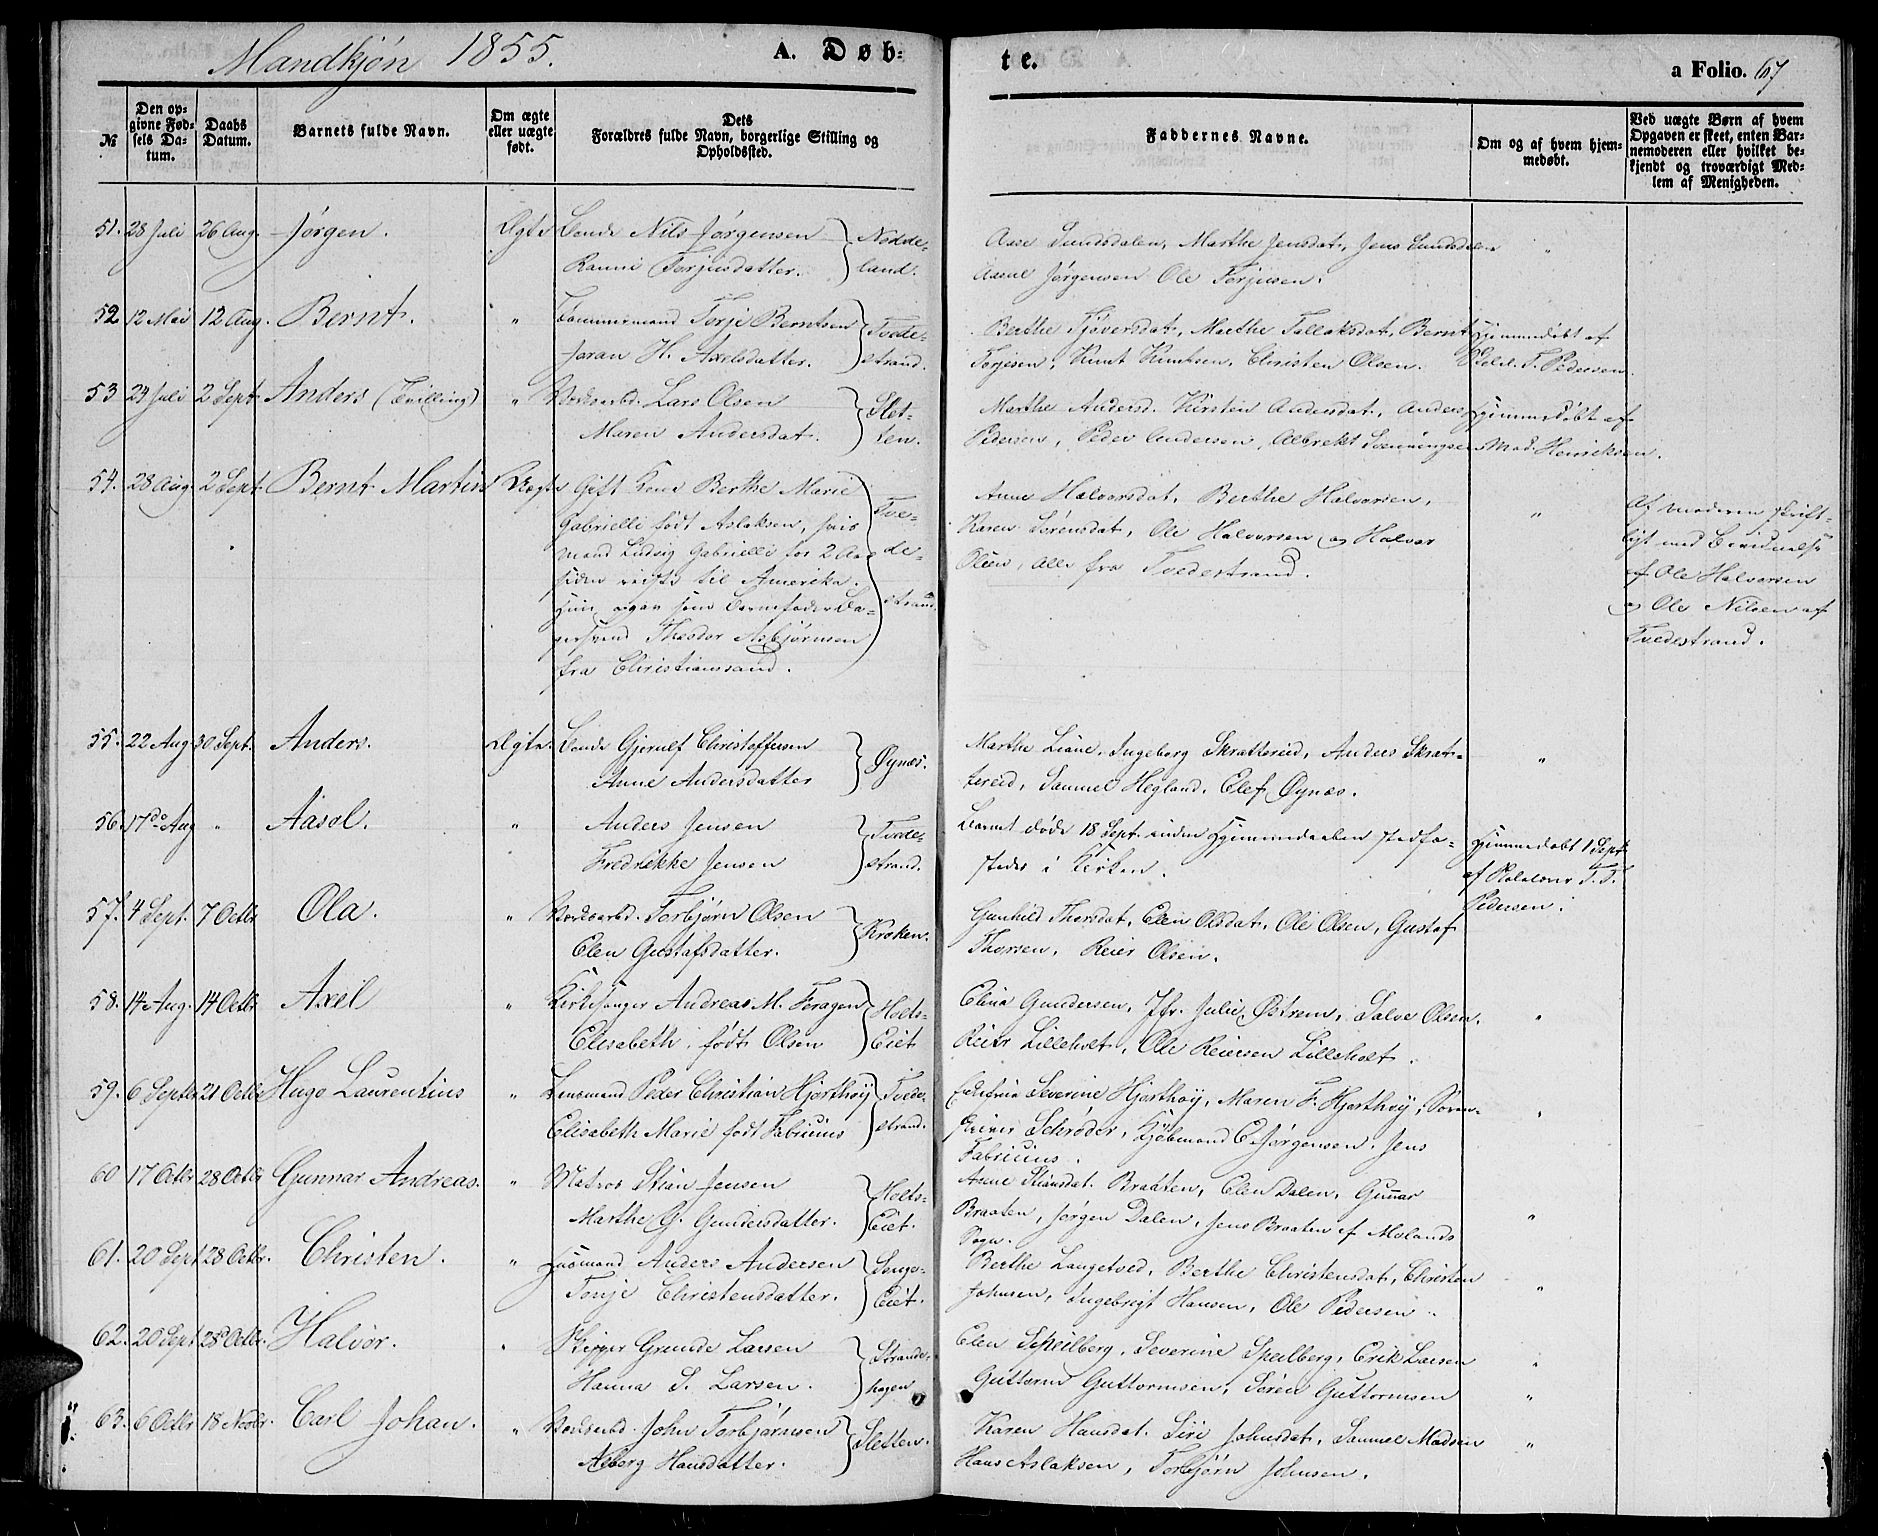 Mandkjön 1855. A. Døb=
te. a Folio. 67
№
Den op=
givne Fød=
sels Da=
tum.
Daabs
Datum.
Barnets fulde Navn.
Om ægte
eller uægte
født.
Dets
Forældres fulde Navn, borgerlige Stilling og
Opholdssted.
Faddernes Navne.
Om og af hvem hjem=
medøbt.
Ved uægte Børn af hvem
Opgaven er skeet, enten Bar=
nemoderen eller hvilket be=
kjendt og troværdigt Med=
lem af Menigheden.
51. 28 Juli 26 Aug. Jörgen. Ægte Bonde Nils Jörgensen Nodde=
Ranni Torjusdatter. land.
Aase Sundsdalen, Marthe Jensdat, Jens Sundsdalen "
Jörgensen Ole Torjusen.
52 12 Mai 12 Aug. Bernt. " Tömmermand Torje Berntsen Tvede=
Joran H. Axelsdatter. strand.
Berthe Sjöversdat, Marthe Tollaksdat, Bernt Hjemmedöbt af
Torjesen, Knut Knutsen, Christen Olsen. T. Pedersen.
53 24 Juli 2 Sept Anders (Tvilling) " Værksarbd. Lars Olsen Slet=
Maren Andersdat. ten.
Marthe Andersd. Kirsten Andersdat, Anders Hjemmedöbt af
Pedersen, Peder Andersen, Albrekt Svenningsen Mad. Henriksen.
54. 28 Aug. 2 Sept. Bernt Martin Uægte Gift Kone Berthe Marie Tve=
Gabrielli födt Aslaksen, hvis
mand Ludvig Gabrielli for 2 Aar de=
siden reiste til Amerika.
Hun opgav som Barnefader Ba= strand
gersvend Theodor Asbjörnsen
fra Christianssand.
Anne Halvorsdat, Berthe Halvorsen,
Karen Sörensdat, Ole Halvorsen og Halvor "
Olsen, Alle fra Tvedestrand.
Af moderen skrift=
ligt med Bevidnelse
af Ole Halvorsen
og Ole Nilsen af
Tvedestrand.
55. 22 Aug 30 Sept. Anders. Ægte. Bonde Gjerulf Christoffersen
Anne Andersdatter Öynæs.
Marthe Liane, Ingeborg Skrattereid, Anders Skrat=
tereid, Samuel Hegland, Elef Öynæs. "
56. 17de Aug " Aasol. " Anders Jensen Tvede=
Fredrikke Jensen strand.
Barnet døde 18 Sept. inden Hjemmedaaben stadfæ= Hjemmedöbt 1 Sept
stedes i Kirken. af T. T.
Pedersen.
57. 4 Sept. 7 Octbr Ola. " Værksarbd. Torbjörn Olsen
Elen Gustafsdatter. Kroken.
Gunhild Thorsdat, Elen Olsdat, Ole Olsen, Gustaf
Thorsen, Reier Olsen.
58. 14 Aug. 14 Octbr Axel " Kirkesanger Andreas M. Feragen Holts=
Elisabeth, födt Olsen Eiet
Elina Gundersen, Jfr. Julie Östrem, Salve Olsen, "
Reier Lilleholt, Ole Reiersen Lilleholt.
59. 6 Septbr 21 Octbr Hugo Laurentius " Lensmand Peder Christian Hjorthöy Tvede=
Elisabeth Marie födt Fabricius strand.
Severine Hjorthöy, Maren F. Hjorthöy, Sören= "
skriver Schröder, Kjöbmand C. Jörgensen, Jens
Fabricius.
60 17 Octbr 28 Octbr Gunnar Andreas. " Matros Stian Jensen Holts=
Marthe G. Gundersdatter. Eiet.
Anne Stiansdat. Braaten, Elen Dalen, Gunnar
Braaten, Jörgen Dalen, Jens Braaten af Molands "
Sogn.
61. 20 Sept 28 Octbr. Christen. " Husmand Anders Andersen Songe=
Tonje Christensdatter. Eiet.
Berthe Langetved, Berthe Christensdat, Christen
Johnsen, Ingebrigt Hansen, Ole Pedersen. "
62. 20 Sept 28 Octbr. Halvor. " Skipper Grunde Larsen Strande=
Hanna S. Larsen. hagen
Elen Speilberg, Severine Speilberg, Erik Larsen "
Guttorm Guttormsen, Sören Guttormsen "
63. 6 Octbr 18 Novbr. Carl Johan. " Værksarbd. John Torbjörnsen
Asberg Hansdatter. Sletten.
Karen Hansdat. Siri Johnsdat, Samuel Madsen "
Hans Aslaksen, Torbjörn Johnsen.